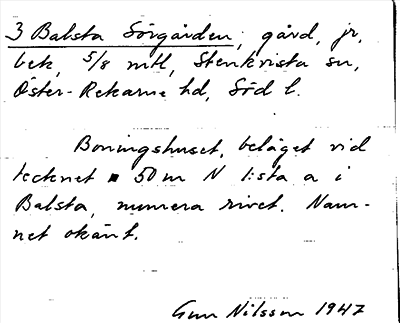 3 Balsta Sörgården, gård, jr,
bek, 5/8 mtl, Stenkvista sn,
Öster-Rekarne hd, Söd l.
Boningshuset, beläget vid
tecknet ■ 50 m N 1:sta a i
Balsta, numera rivet. Nam-
net okänt.
Gun Nilsson 1947